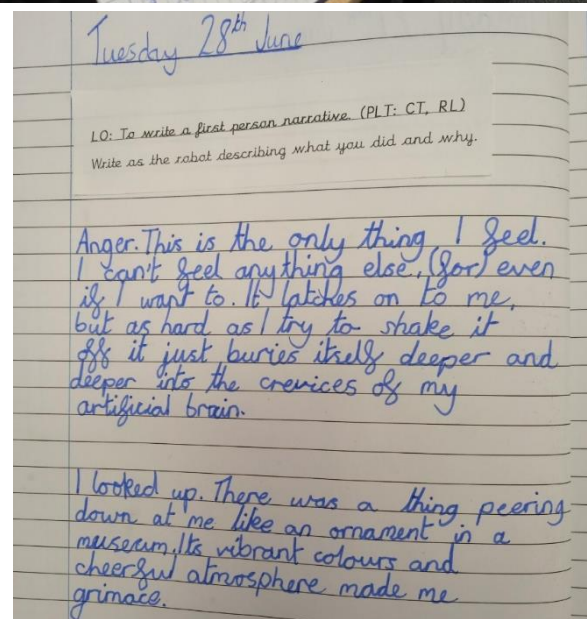 Tuesday 28th June
LO: To write a first person narrative. (PLT: CT, RL)
Write as the robot describing what you did and why.
Anger. This is the only thing I feel.
I can't feel anything else, (for) even
if I want to. It latches on to me,
but as hard as I try to shake it
off it just buries itself deeper and
deeper into the crevices of my
artificial brain.
I looked up. There was a thing peering
down at me like an ornament in a
museum. Its vibrant colours and
cheerful atmosphere made me
grimace.